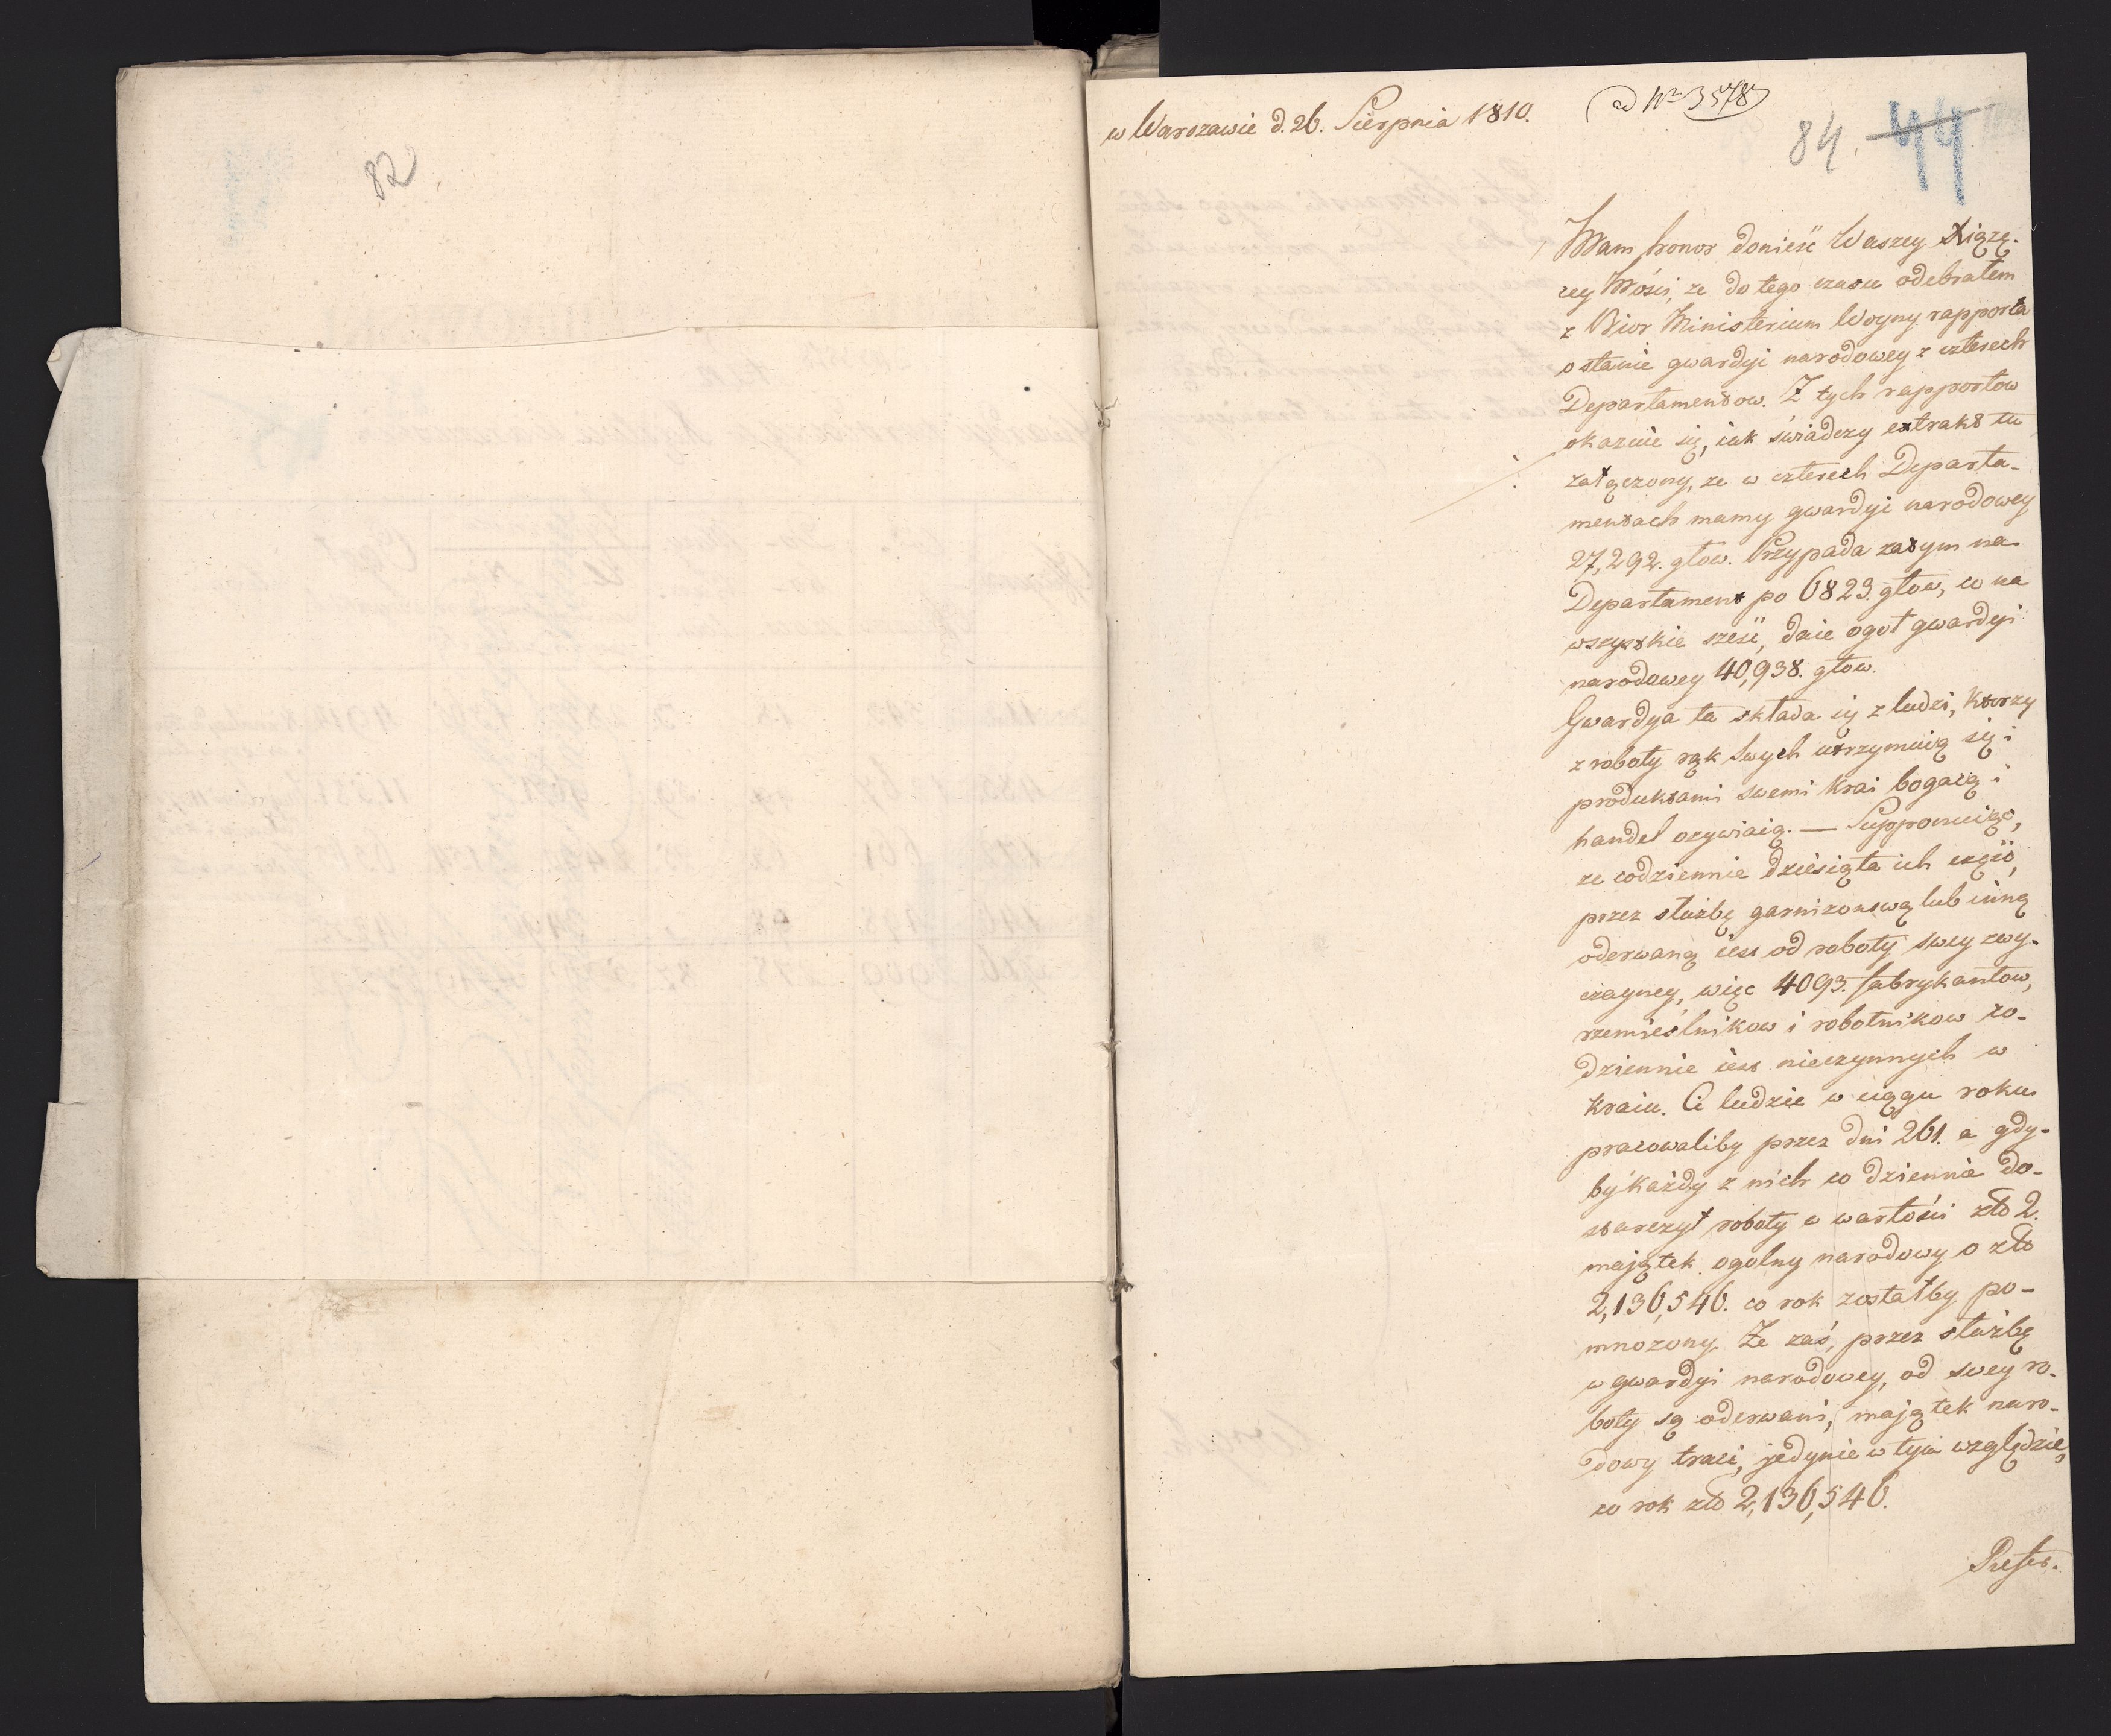 82.
w Warszawie d. 26. Sierpnia 1810.
ad Nro 3578
84. 44
Mam honor donieść Waszey Xiążę-
cey Mości, ze do tego czasu odebrałem
z Biór Ministerium Woyny rapporta
o stanie gwardyi narodowey z czterech
Departamentow. Z tych rapportow
okazuie się, iak świadczy extrakt tu
załączony, ze w czterech Departa-
mentach mamy gwardyi narodowey
27,292. głow. Przypada zatym na
Departament po 6823. głow, co na
wszystkie sześć, daie ogoł gwardyi
narodowey 40,938. głow.
Gwardya ta składa się z ludzi, ktorzy
z roboty rąk swych utrzymuią się i
produktami swemi krai bogacą i
handel ozywiaią. — Supponuiąc,
ze codziennie dziesiąta ich część,
przez służbę garnizonową lub inną
oderwaną iest od roboty swey zwy-
czayney, więc 4093. fabrykantow,
rzemieślnikow i robotnikow co-
dziennie iest nieczynnych w
kraiu. Ci ludzie w ciągu roku
pracowaliby przez dni 261. a gdy-
by każdy z nich co dziennie do-
starczył roboty w wartości złt 2.
majątek ogolny narodowy o złt
2,136,546. co rok zostałby po-
mnozony. Ze zaś, przez służbę
w gwardyi narodowey, od swey ro-
boty są oderwani, majątek naro-
dowy traci, jedynie w tym względzie,
co rok złt 2,136,546.
Prefes.